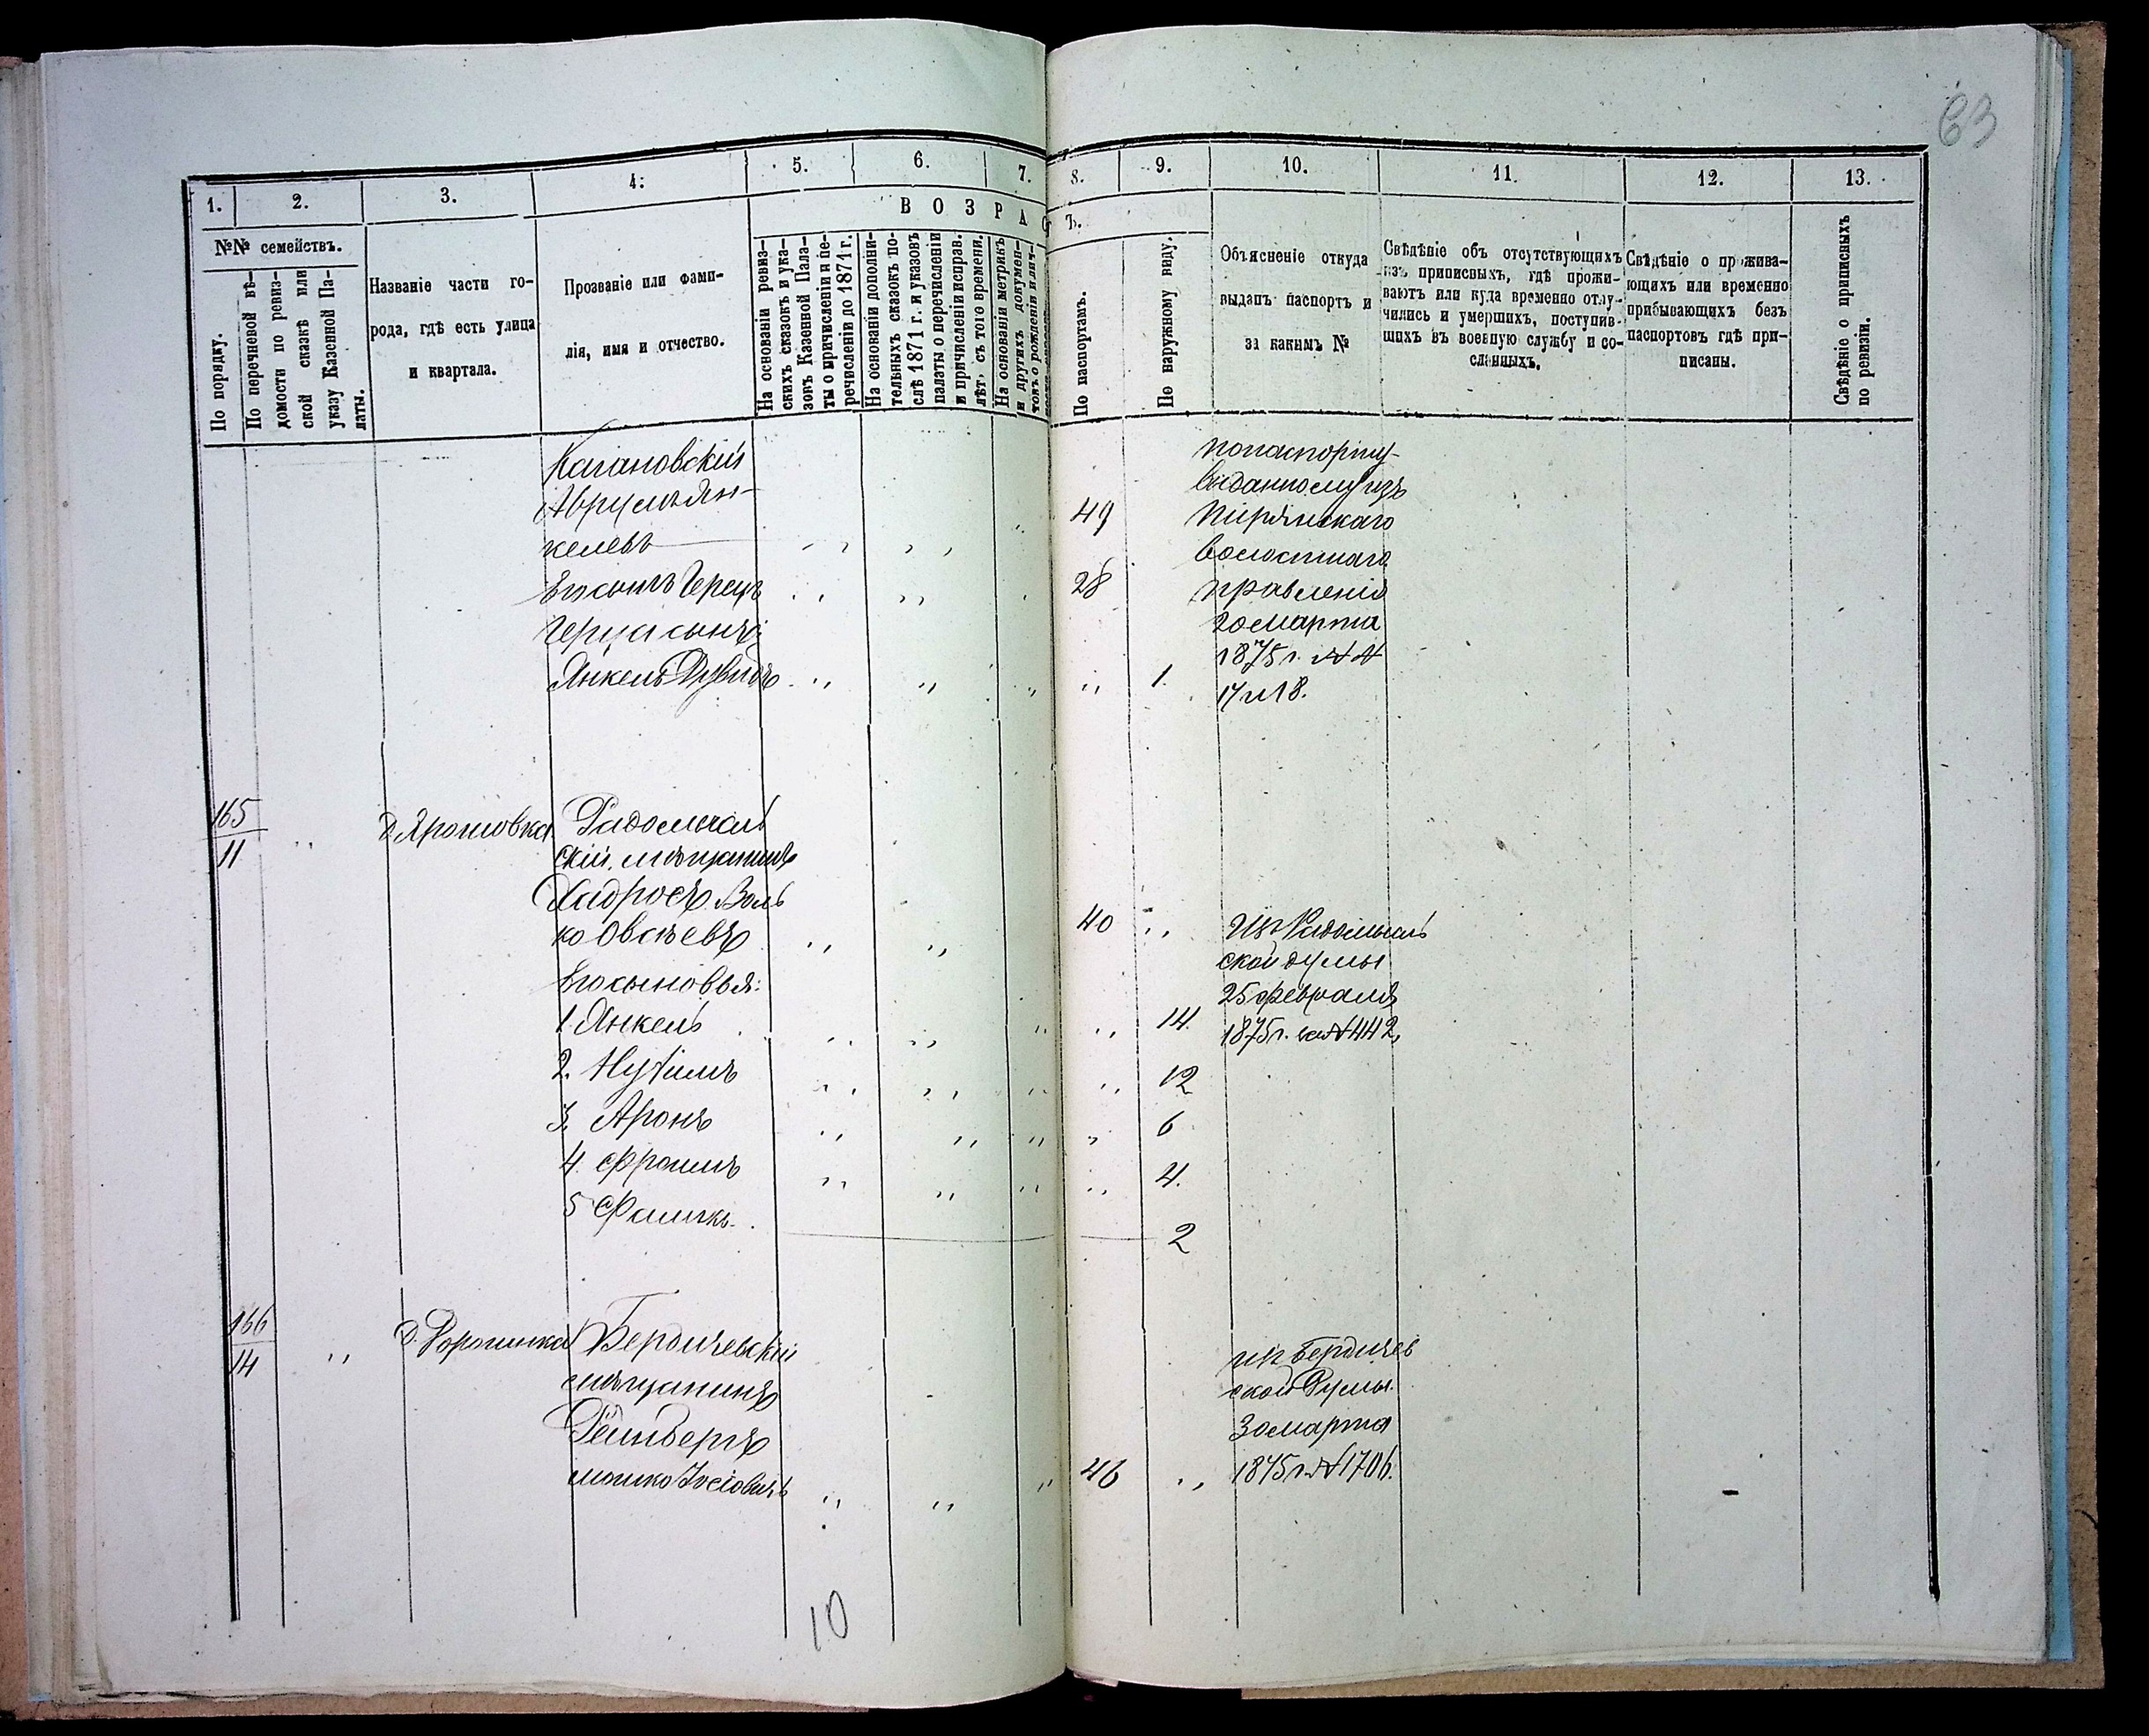 63
1.
2.
3.
4:
5.
6.
7.
8.
9.
10.
11.
12.
13.
№№ семействъ.
По порядку.
По перечневой вѣ-
домости по ревиз-
ской сказкѣ или
указу Казенной Па-
латы.
Названіе части го-
рода, гдѣ есть улица
и квартала.
Прозваніе или фами-
лія, имя и отчество.
ВОЗРАС
Ъ.
На основаніи ревиз-
скихъ сказокъ и ука-
зовъ Казенной Пала-
ты о причисленіи и пе-
речисленіи до 1871 г.
На основаніи дополни-
тельныхъ сказокъ по-
слѣ 1871 г. и указовъ
палаты о перечисленіи
и причисленіи исправ.
лѣт. съ того времени.
На основаніи метрикъ
и другихъ докумен-
товъ о рожденіи или
По паспортамъ.
По наружному виду.
Объясненіе откуда
выданъ паспортъ и
за какимъ №
Свѣдѣніе объ отсутствующихъ
изъ приписныхъ, гдѣ прожи-
ваютъ или куда временно отлу-
чились и умершихъ, поступив-
шихъ въ военную службу и со-
сланныхъ.
Свѣдѣніе о прожива-
ющихъ или временно
прибывающихъ безъ
паспортовъ гдѣ при-
писаны.
Свѣдѣніе о приписныхъ
по ревизіи.
Кагановскій
Аврумъ Ян-
келевъ
49
Его сынъ Герецъ
28
Герца сынъ:
Янкель Дувидъ
1.
по паспорту
выданному изъ
волостнаго
правленія
20 марта
1875 г. №№
17 и 18.
165
11
Д. Ярошовка
Радомысль
скій мѣщанинъ
Воль
ко Овсѣевъ
40
Его сыновья:
1. Янкель
14.
2. Нухимъ
12
3. Аронъ
6
4. Фроимъ
4.
5
2
Из Радомысль
ской думы
25 февраля
1875 г. за № 442,
166
14
Бердичевскій
мѣщанинъ
Рейнбергъ
Мошко Іосіовичъ
46
из Бердичев
ской Думы
30 марта
1875 г. № 1706.
10